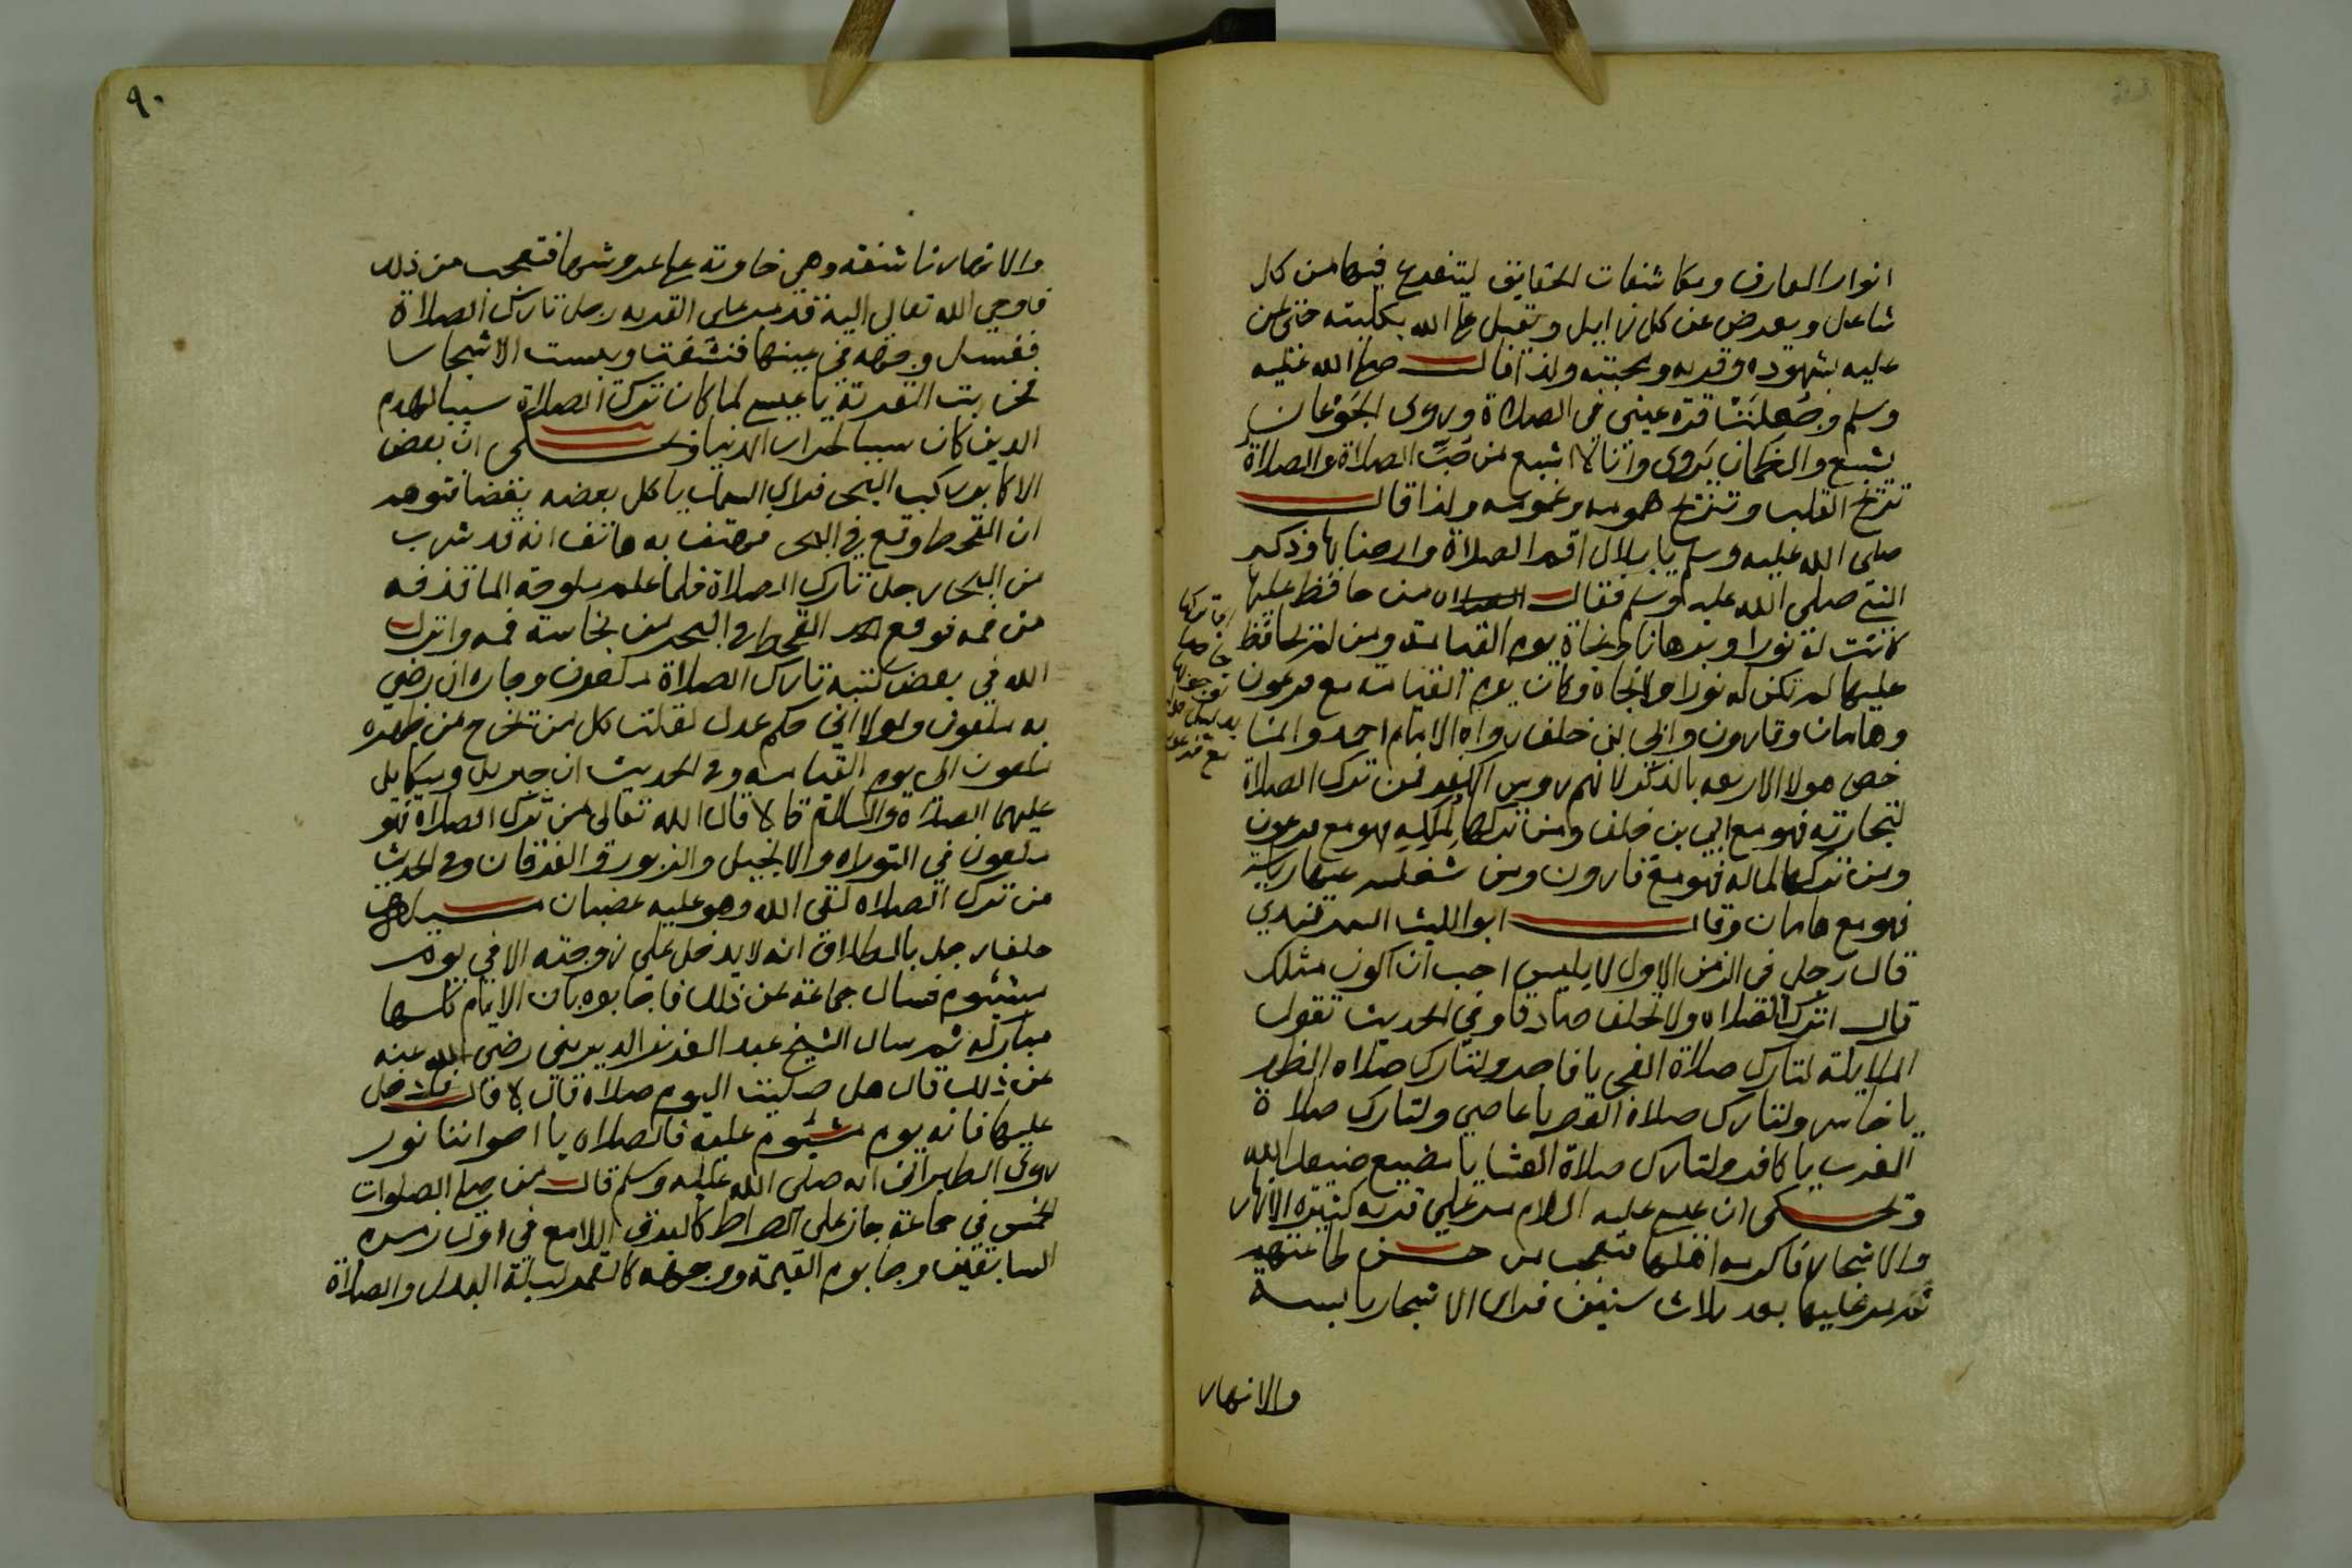 انوار المعارف ومكاشفات الحقايق ليتفرغ فيها من كل
شاغل ويعرض عن كل زايل ويقبل على الله بكليته حتى يمن
عليه بشهوده وقربه ومحبته ولذا قال صلى الله عليه
وسلم وجعلت قرة عينى فى الصلاة وروى الجوعان
يشبع والظمان يروى وانا لا اشبع من حب الصلاة والصلاة
تفرح القلب وتفرج همومه وغمومه ولذا قال
صلى الله عليه وسلم يا بلال اقم الصلاة وارحنا بها وذكر
النبي صلى الله عليه وسلم فقال من حافظ عليها
كانت له نورا وبرهانا ونجاة يوم القيامة ومن لم يحافظ
عليها لم تكن له نورا ولا نجاة وكان يوم القيامة مع فرعون
وهامان وقارون وابي ابن خلف رواه الامام احمد وانما
خص هولا الاربعه بالذكر لانهم روس الكفر فمن ترك الصلاة
لتجارته فهو مع ابي بن خلف ومن تركها لملكه فهو مع فرعون
ومن تركها لماله فهو مع قارون ومن شغلته عنها رياسة
فهو مع هامان وقال ابو الليث السمرقندي
قال رجل فى الزمن الاول لابليس احب ان اكون مثلك
قال اترك الصلاه ولا تحلف صادقا وفي الحديث تقول
الملايكة لتارك صلاة الفجر يا فاجر ولتارك صلاه الظهر
يا خاسر ولتارك صلاة العصر يا عاصي ولتارك صلاة
المغرب يا كافر ولتارك صلاة العشا يا مضيع ضيعك الله
وحكى ان عيسى عليه السلام مر على قريه كثيرة الانهار
والاشجار فاكرمه اهلها فتعجب من حسن طاعتهم
ثم مر عليها بعد ثلاث سنين فراى الاشجار يابسة
والانهار
٩٠
والانهار ناشفة وهي خاوية على عروشها فتعجب من ذلك
فاوحي الله تعالى اليه قد مر على القريه رجل تارك الصلاة
فغسل وجهه في عينها فنشفت ويبست الاشجار
فخربت القرية يا عيسى لما كان ترك الصلاة سببا لهدم
الدين كان سببا لخراب الدنيا وحكى ان بعض
الاكابر ركب البحر فراى السمك ياكل بعضه بعضا فتوهم
ان القحط وقع في البحر فهتف به هاتف انه قد شرب
من البحر رجل تارك الصلاة فلما علم ملوحة الما قذفه
من فمه فوقع القحط فى البحر من نجاسة فمه وانزل
الله في بعض كتبه تارك الصلاة ملعون وجاره ان رضي
به ملعون ولولا اني حكم عدل لقلت كل من تخرج من ظهره
ملعون الى يوم القيامه وفي الحديث ان جبريل وميكايل
عليهما الصلاة والسلام قالا قال الله تعالى من ترك الصلاة فهو
ملعون في التوراه والانجيل والزبور والفرقان وفى الحديث
من ترك الصلاه لقى الله وهو عليه غضبان
حلف رجل بالطلاق انه لا يدخل على زوجته الا في يوم
مشئوم فسال جماعة عن ذلك فاجابوه بان الايام كلها
مباركه ثم سال الشيخ عبد العزيز الديريني رضي الله عنه
عن ذلك قال هل صليت اليوم صلاة قال لا قال فادخل
عليها فانه يوم مشئوم عليه فالصلاه يا اخواننا نور
روى الطبراني انه صلى الله عليه وسلم قال من صلى الصلوات
الخمس في جماعة جاز على الصراط كالبرق اللامع فى اول زمره
السابقين وجا يوم القيمة ووجهه كالقمر ليلة البدر والصلاة